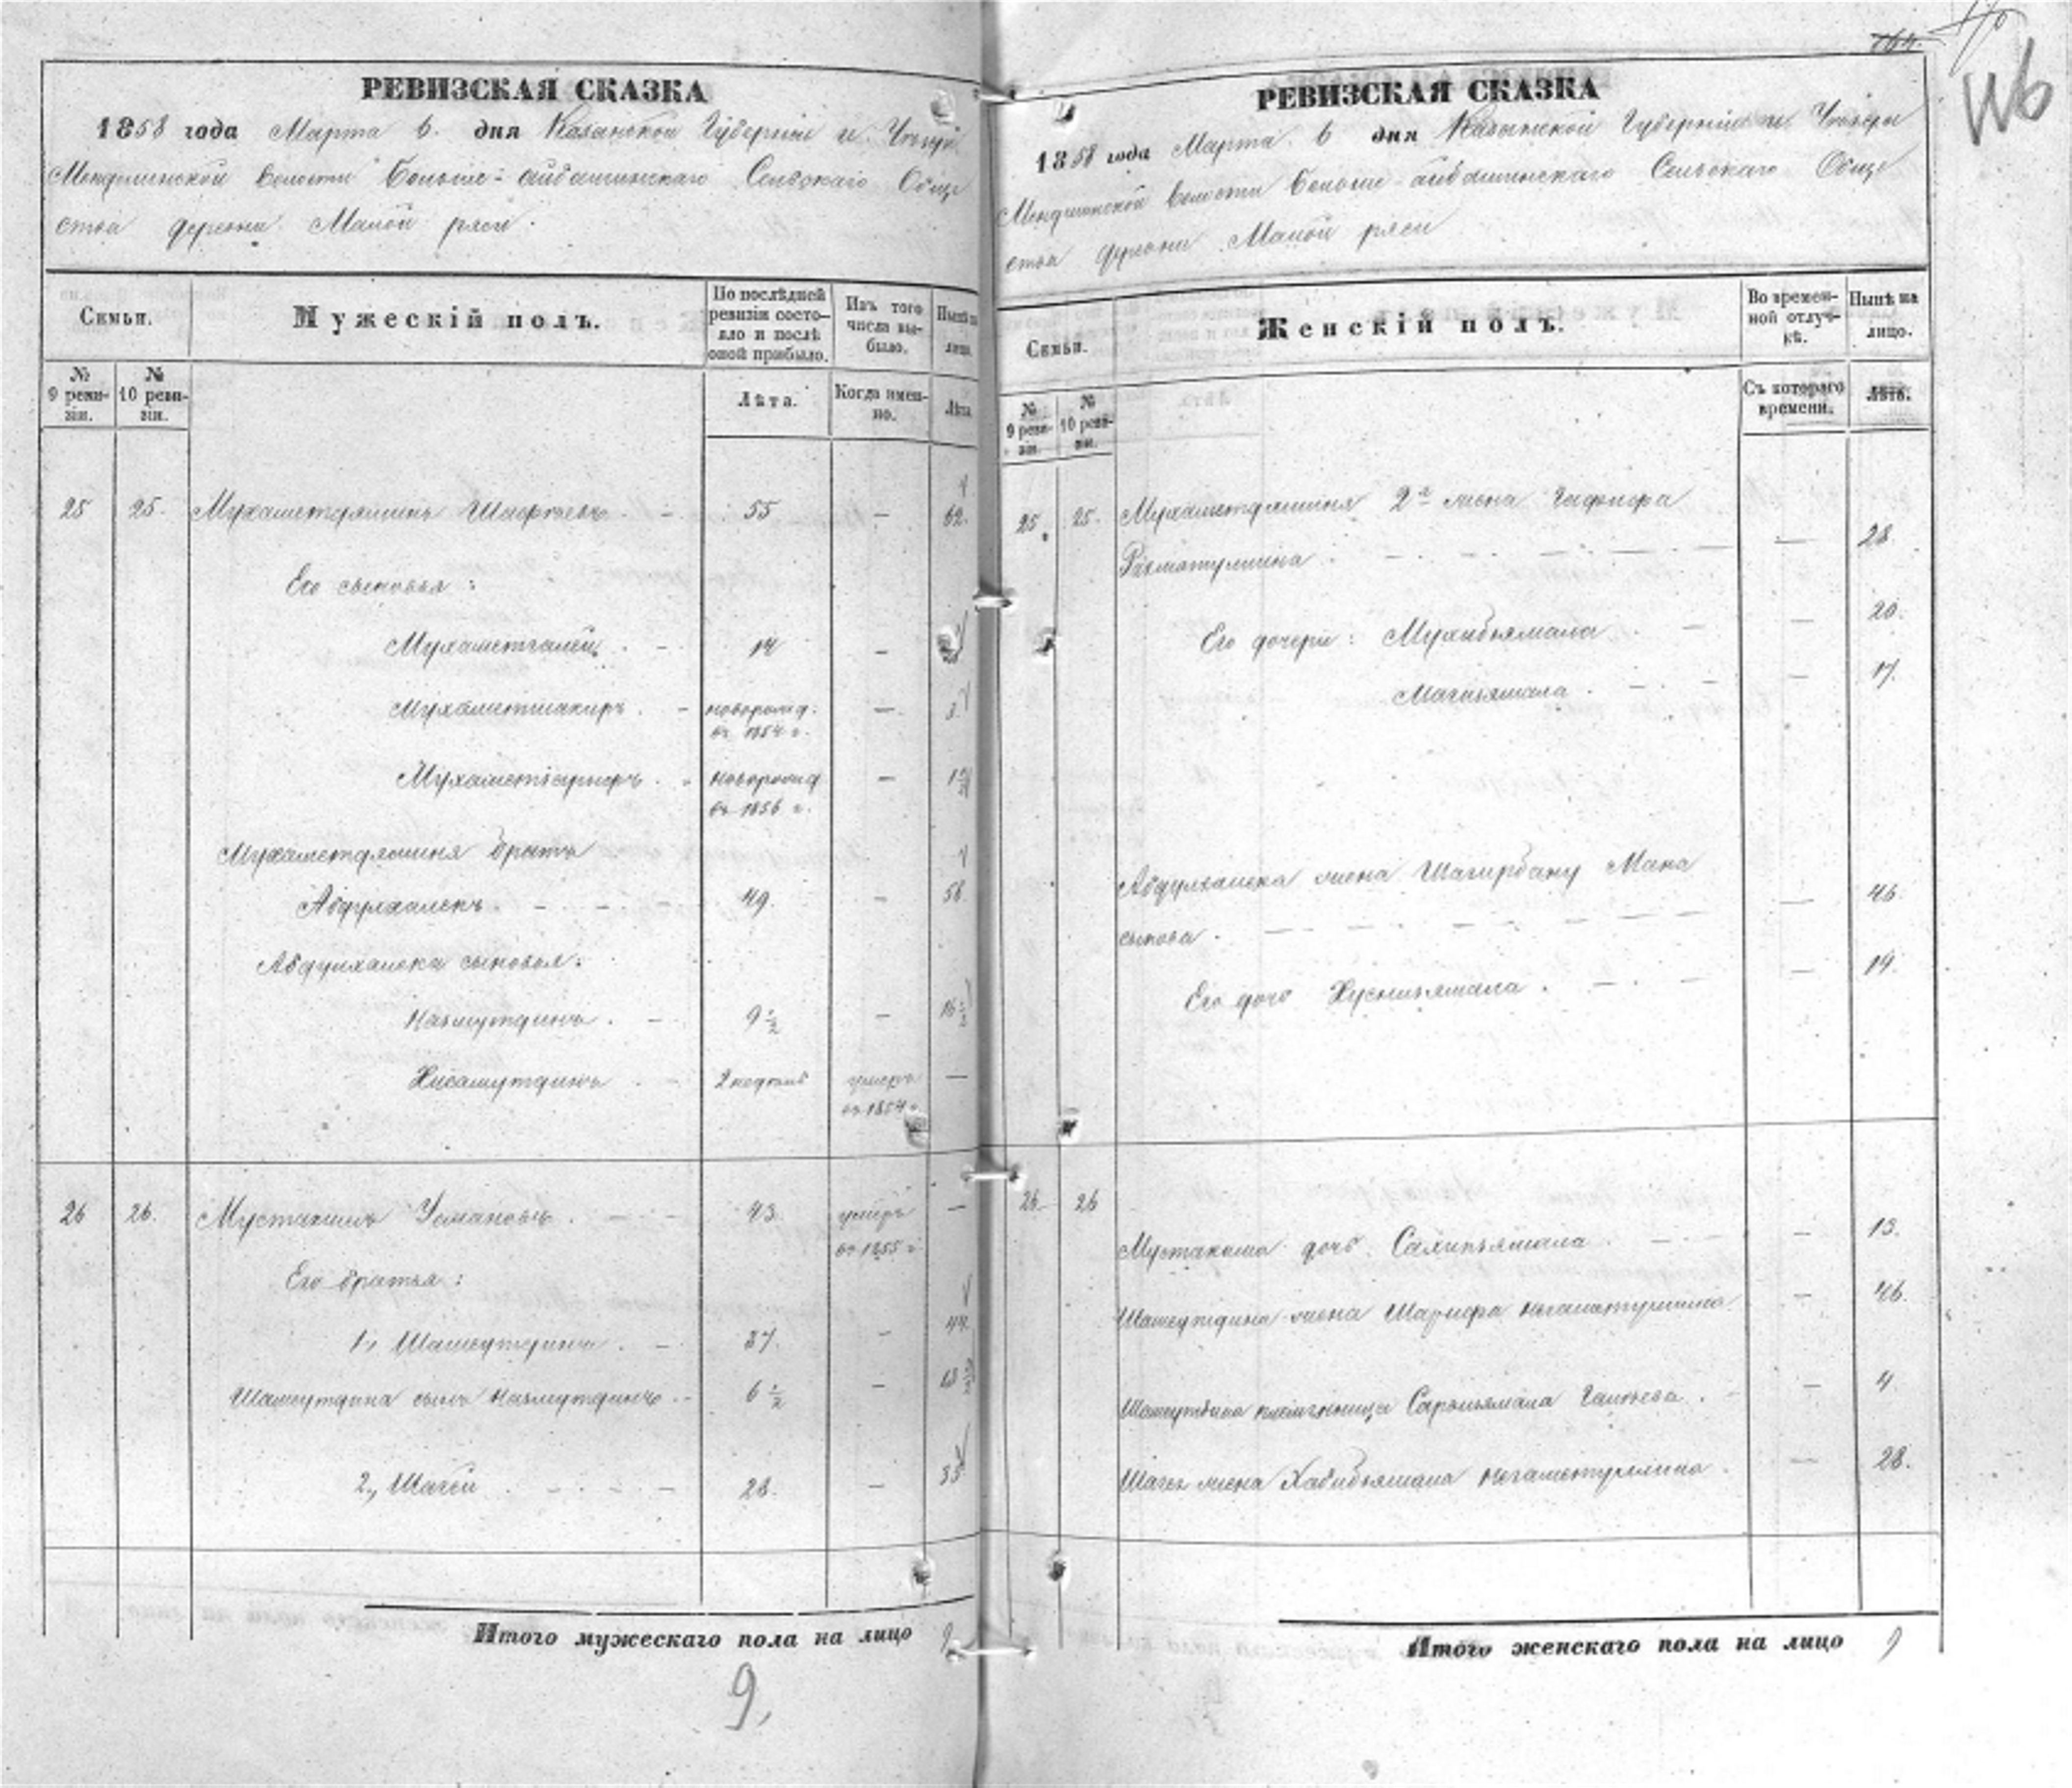 РЕВИЗСКАЯ СКАЗКА
1858 года Марта 6. дня Казанской Губернiи и Уѣзда
Мендѣлинской волости Больше-айдашинскаго Сельскаго Обще
ства деревни Малой ряси.
Семьи.
Мужескiй полъ.
По послѣдней ревизiи состо-
яло и послѣ оной прибыло.
Изъ того числа вы-
было.
Нынѣ на лицо.
№ 9 реви-
зiи.
№ 10 реви-
зiи.
Лѣта.
Когда имен-
но.
Лѣта.
25 25. Мухаметдяминъ Шафѣевъ 55 — 62.
Его сыновья:
Мухаметгалей 14 —
Мухаметшакиръ новорожд. — 3
въ 1854 г.
Мухаметзарифъ новорожд — 1½
въ 1856 г.
Мухаметдяминя братъ
Абдулхалекъ 49. — 56.
Абдулхалека сыновья:
Назмутдинъ 9½ — 16½
Хисамутдинъ 2 недѣль умеръ —
въ 1854 г.
26 26. Мустакимъ Усмановъ 43. умеръ —
въ 1855 г.
Его братья:
1, Шамсутдинъ 37. — 44.
Шамсутдина сынъ Назмутдинъ 6½ — 13½
2, Шагей 28. — 35
Итого мужескаго пола на лицо 9
9,
164.
170
116
РЕВИЗСКАЯ СКАЗКА
1858 года Марта 6 дня Казанской Губернiи и Уѣзда
Мендѣлинской волости Больше-айдашинскаго Сельскаго Обще
ства деревни Малой ряси
Семьи.
Женскiй полъ.
Во времен-
ной отлуч-
кѣ.
Нынѣ на лицо.
№ 9 реви-
зiи.
№ 10 реви-
зiи.
Съ котораго времени.
Лѣта.
25. 25. Мухаметдяминя 2я жена Гафифа
Рахматуллина — 28.
Его дочери: Мухибзямала — 20.
Магизямала — 17.
Абдулхалека жена Шагирбану Мана
сыпова — 46
Его дочь Хуснизямала — 19.
26. 26
Мустакима дочь Салипзямала — 13.
Шамсутдина жена Шарифа Нигаметуллина — 46.
Шамсутдина племянница Сарвизямала Галѣева — 4.
Шагея жена Хабибзямала Нигаметуллина — 28.
Итого женскаго пола на лицо 9